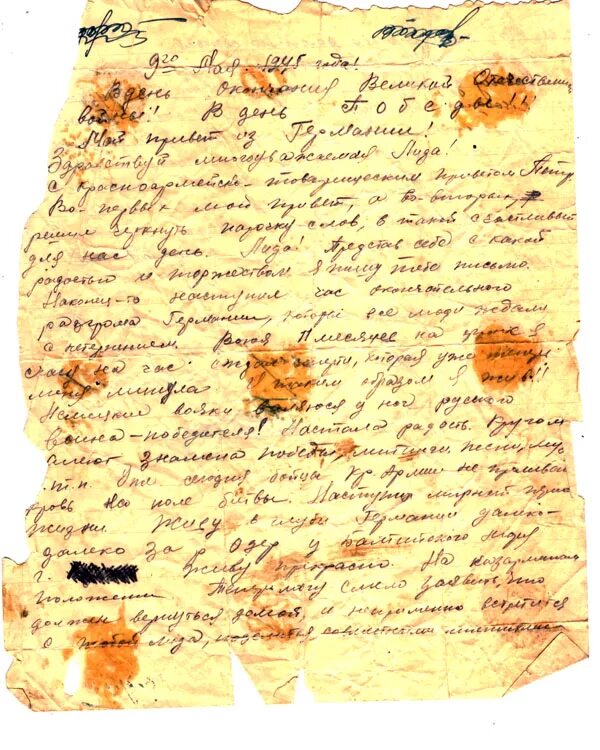 9го Мая 1945 года!
В день Окончания Великой Отечественн
войны!! В день Победы!!!
Мой привет из Германии!
Здравствуй многоуважаемая Лида!
с красноармейско-товарищеским приветом Петр
Во-первых мой привет, а во-вторых,
решил черкнуть парочку слов, в такой счастливый
для нас день. Лида! Представ себе с какой
радостью и торжеством я пишу тебе письмо.
Наконец-то наступил час окончательного
разгрома Германии, которые все люди ждали
с нетерпением. Воюя месяцев на
час на час ждал смерти, которая уже теперь
меня минула. И таким образом я жив!!
Немецкие вояки валяются у ног руского
воина-победителя! Настала радость. Кругом
знамена победы, митинги, песни, му
.т.п. сегодня бойцы Кр. Армии не проливают
кровь на поле битвы. Наступил мирный
жизни. Живу в глуби Германии далеко-
далеко за р Одер у Балтийского моря
г. Живу прекрасно. На казарменном
положении Теперь могу смело заявить, что
должен вернуться домой, и непременно встретится
с тобой Лида, поделится совместными